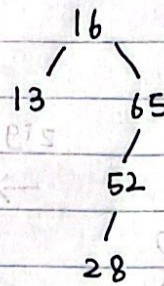 16
13 65
52
28